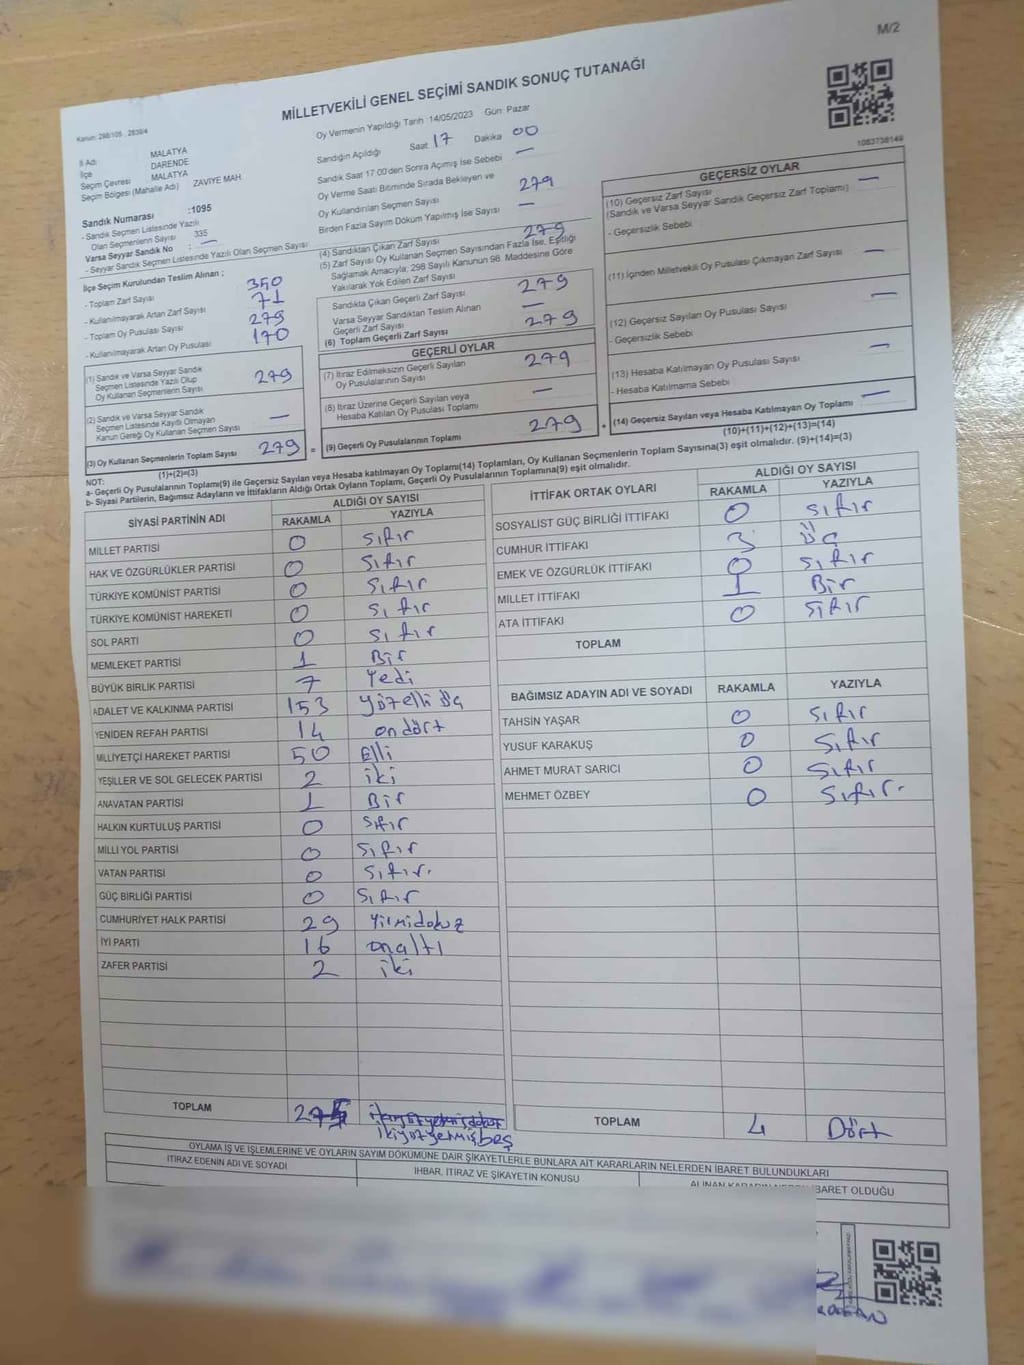 M/2
MİLLETVEKİLİ GENEL SEÇİMİ SANDIK SONUÇ TUTANAĞI
Kanun: 298/105 , 2839/4
Oy Vermenin Yapıldığı Tarih :14/05/2023 Gün: Pazar
1083738149
İl Adı MALATYA
İlçe DARENDE
Seçim Çevresi MALATYA
Seçim Bölgesi (Mahalle Adı) ZAVİYE MAH.
Sandık Numarası :1095
- Sandık Seçmen Listesinde Yazılı
Olan Seçmenlerin Sayısı 335
Varsa Seyyar Sandık No : —
- Seyyar Sandık Seçmen Listesinde Yazılı Olan Seçmen Sayısı
İlçe Seçim Kurulundan Teslim Alınan ;
- Toplam Zarf Sayısı 350
- Kullanılmayarak Artan Zarf Sayısı 71
- Toplam Oy Pusulası Sayısı 279
- Kullanılmayarak Artan Oy Pusulası 170
(1) Sandık ve Varsa Seyyar Sandık
Seçmen Listesinde Yazılı Olup
Oy Kullanan Seçmenlerin Sayısı 279
(2) Sandık ve Varsa Seyyar Sandık
Seçmen Listesinde Kayıtlı Olmayan
Kanun Gereği Oy Kullanan Seçmen Sayısı —
(3) Oy Kullanan Seçmenlerin Toplam Sayısı 279
(1)+(2)=(3)
Sandığın Açıldığı Saat 17 Dakika 00
Sandık Saat 17:00'den Sonra Açımış İse Sebebi —
Oy Verme Saati Bitiminde Sırada Bekleyen ve
Oy Kullandırılan Seçmen Sayısı 279
Birden Fazla Sayım Döküm Yapılmış İse Sayısı —
(4) Sandıktan Çıkan Zarf Sayısı 279
(5) Zarf Sayısı Oy Kullanan Seçmen Sayısından Fazla İse, Eşitliği
Sağlamak Amacıyla, 298 Sayılı Kanunun 98. Maddesine Göre
Yakılarak Yok Edilen Zarf Sayısı
Sandıkta Çıkan Geçerli Zarf Sayısı 279
Varsa Seyyar Sandıktan Teslim Alınan
Geçerli Zarf Sayısı —
(6) Toplam Geçerli Zarf Sayısı 279
GEÇERLİ OYLAR
(7) İtiraz Edilmeksizin Geçerli Sayılan
Oy Pusulalarının Sayısı 279
(8) İtiraz Üzerine Geçerli Sayılan veya
Hesaba Katılan Oy Pusulası Toplamı —
= (9) Geçerli Oy Pusulalarının Toplamı 279 +
GEÇERSİZ OYLAR
(10) Geçersiz Zarf Sayısı —
(Sandık ve Varsa Seyyar Sandık Geçersiz Zarf Toplamı)
- Geçersizlik Sebebi
(11) İçinden Milletvekili Oy Pusulası Çıkmayan Zarf Sayısı —
(12) Geçersiz Sayılan Oy Pusulası Sayısı —
- Geçersizlik Sebebi
(13) Hesaba Katılmayan Oy Pusulası Sayısı —
- Hesaba Katılmama Sebebi
(14) Geçersiz Sayılan veya Hesaba Katılmayan Oy Toplamı —
(10)+(11)+(12)+(13)=(14)
NOT:
a- Geçerli Oy Pusulalarının Toplamı(9) ile Geçersiz Sayılan veya Hesaba katılmayan Oy Toplamı(14) Toplamları, Oy Kullanan Seçmenlerin Toplam Sayısına(3) eşit olmalıdır. (9)+(14)=(3)
b- Siyasi Partilerin, Bağımsız Adayların ve İttifakların Aldığı Ortak Oyların Toplamı, Geçerli Oy Pusulalarının Toplamına(9) eşit olmalıdır.
SİYASİ PARTİNİN ADI ALDIĞI OY SAYISI
RAKAMLA YAZIYLA
MİLLET PARTİSİ 0 sıfır
HAK VE ÖZGÜRLÜKLER PARTİSİ 0 sıfır
TÜRKİYE KOMÜNİST PARTİSİ 0 sıfır
TÜRKİYE KOMÜNİST HAREKETİ 0 sıfır
SOL PARTİ 0 sıfır
MEMLEKET PARTİSİ 1 Bir
BÜYÜK BİRLİK PARTİSİ 7 yedi
ADALET VE KALKINMA PARTİSİ 153 yüzelli üç
YENİDEN REFAH PARTİSİ 14 ondört
MİLLİYETÇİ HAREKET PARTİSİ 50 Elli
YEŞİLLER VE SOL GELECEK PARTİSİ 2 iki
ANAVATAN PARTİSİ 1 Bir
HALKIN KURTULUŞ PARTİSİ 0 sıfır
MİLLİ YOL PARTİSİ 0 sıfır
VATAN PARTİSİ 0 sıfır.
GÜÇ BİRLİĞİ PARTİSİ 0 sıfır
CUMHURİYET HALK PARTİSİ 29 yirmidokuz
İYİ PARTİ 16 onaltı
ZAFER PARTİSİ 2 iki
TOPLAM 275
ikiyüzyetmişbeş
İTTİFAK ORTAK OYLARI ALDIĞI OY SAYISI
RAKAMLA YAZIYLA
SOSYALİST GÜÇ BİRLİĞİ İTTİFAKI 0 sıfır
CUMHUR İTTİFAKI 3 üç
EMEK VE ÖZGÜRLÜK İTTİFAKI 0 sıfır
MİLLET İTTİFAKI 1 Bir
ATA İTTİFAKI 0 sıfır
TOPLAM
BAĞIMSIZ ADAYIN ADI VE SOYADI RAKAMLA YAZIYLA
TAHSİN YAŞAR 0 sıfır
YUSUF KARAKUŞ 0 sıfır
AHMET MURAT SARICI 0 sıfır
MEHMET ÖZBEY 0 sıfır.
TOPLAM 4 Dört
OYLAMA İŞ VE İŞLEMLERİNE VE OYLARIN SAYIM DÖKÜMÜNE DAİR ŞİKAYETLERLE BUNLARA AİT KARARLARIN NELERDEN İBARET BULUNDUKLARI
İTİRAZ EDENİN ADI VE SOYADI İHBAR, İTİRAZ VE ŞİKAYETİN KONUSU ALINAN KARARIN NEDEN İBARET OLDUĞU